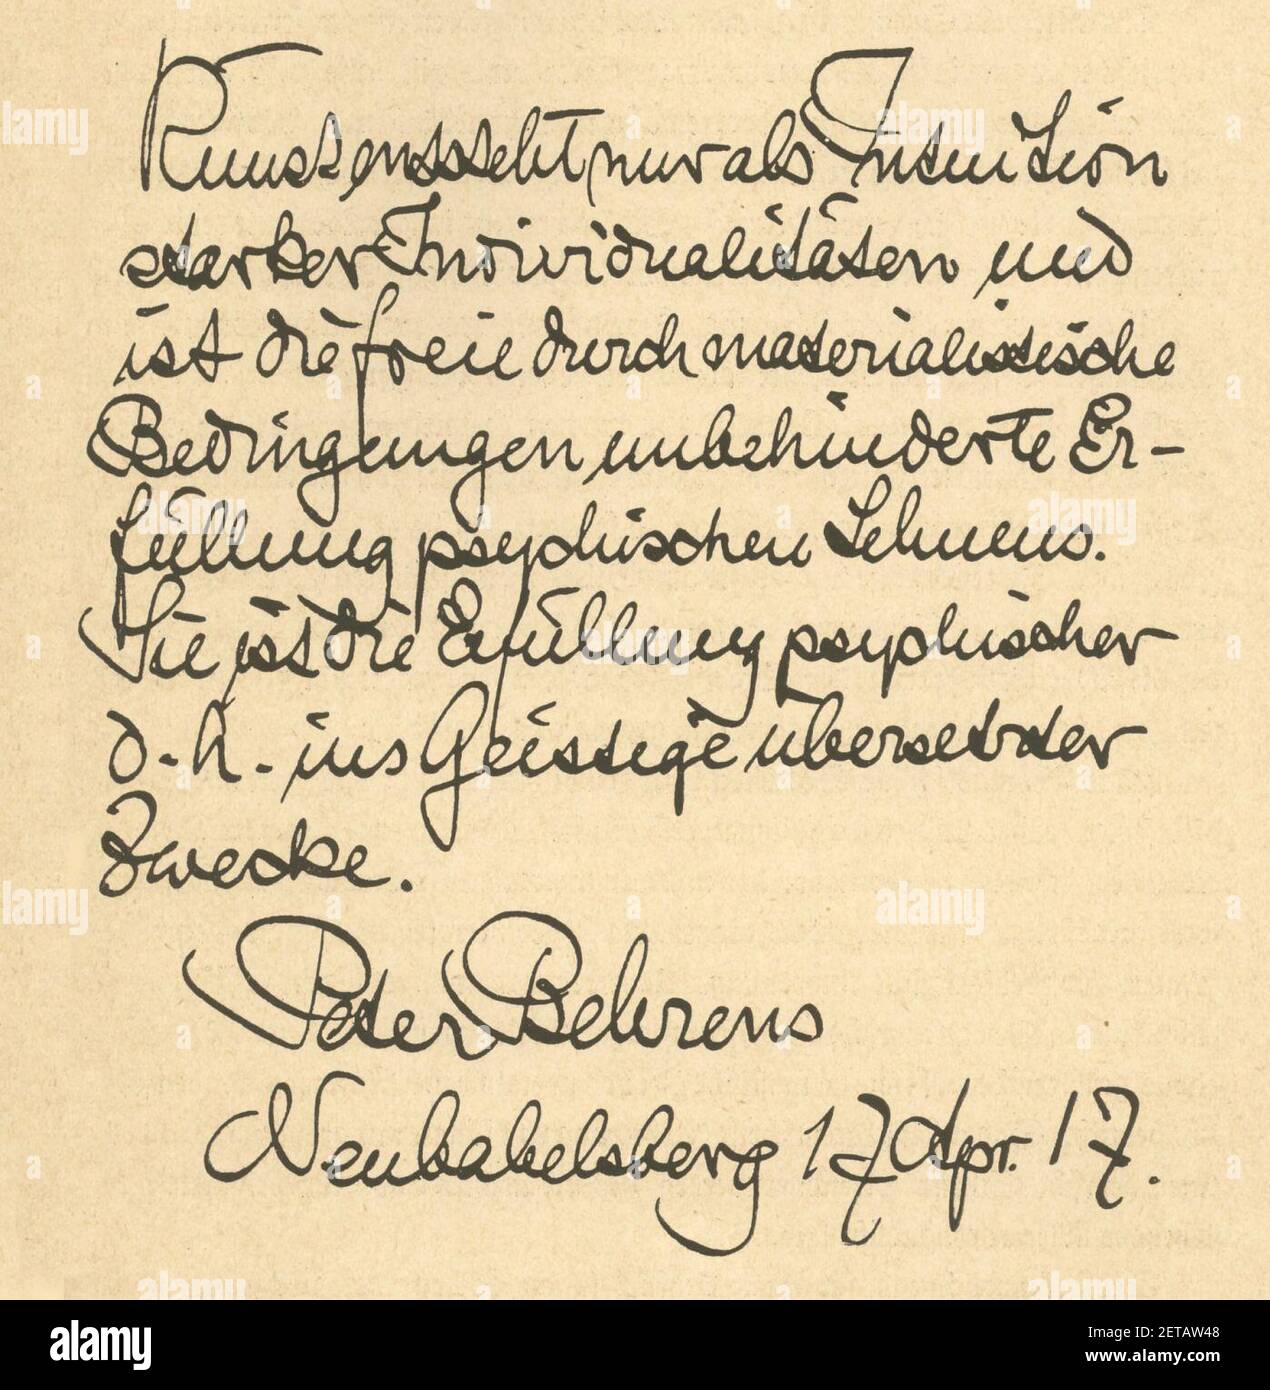 Kunst entsteht nur als Intuition
starker Individualitäten und
ist die freie durch materialistische
Bedingungen unbehinderte Er-
füllung psychischen Sehnens.
Sie ist die Erfüllung psychischer
d. h. ins Geistige übersetzter
Zwecke.
Peter Behrens
Neubabelsberg 17 Apr. 17.
alamy
Image ID: 2ETAW48
www.alamy.com